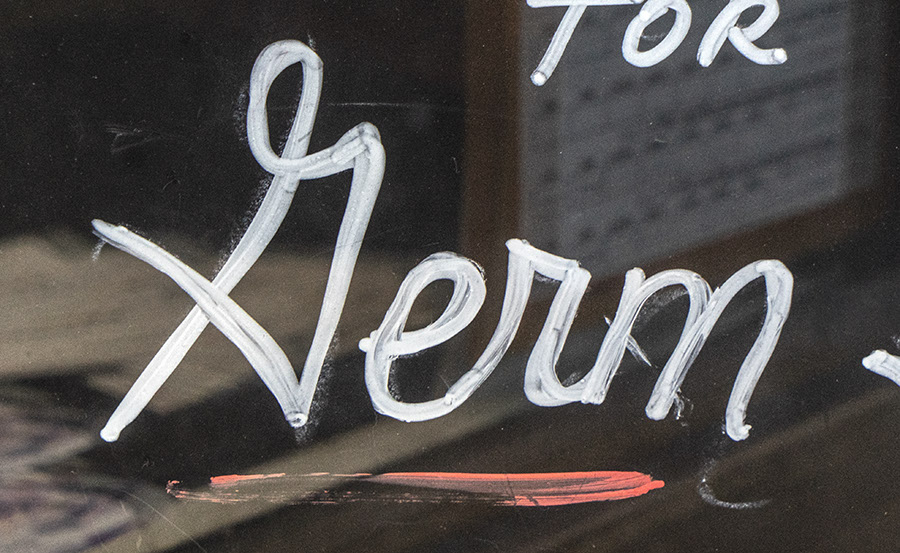 FOR
Germ